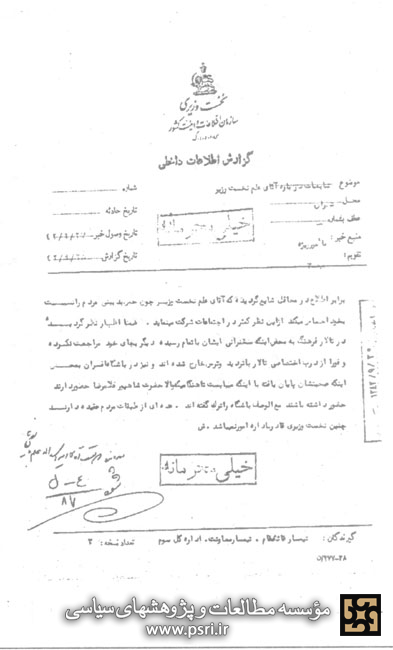 نخست وزیری
سازمان اطلاعات و امنیت کشور
گزارش اطلاعات داخلی
موضوع شایعات درباره آقای علم نخست وزیر
شماره
محل تهران
تاریخ حادثه
خیلی محرمانه
منبع خبر: مأمور ویژه
تاریخ وصول خبر
تقویم:
تاریخ گزارش
برابر اطلاع در محافل شایع گردیده که آقای علم نخست وزیر چون ضدیت بعضی مردم را نسبت
بخود احساس میکند از این نظر کمتر در اجتماعات شرکت مینماید. ضمنا اظهار نظر گردیده
در تالار فرهنگ به محض اینکه سخنرانی ایشان باتمام رسیده دیگر بجای خود مراجعت نکرده
و فورا از درب اختصاصی تالار باتردید و ترس خارج شده اند و نیز در باشگاه افسران بمحض
اینکه صحبتشان پایان یافته با اینکه میبایست تا هنگامیکه والاحضرت شاهپور غلامرضا حضور دارند
حضور داشته باشند مع الوصف باشگاه را ترک گفته اند. عده ای از طبقات مردم عقیده دارند
چنین نخست وزیری قادر باداره امور نمیباشد. ش
خیلی محرمانه
گیرندگان: تیمسار قائم مقام - تیمسار معاونت - اداره کل سوم تعداد نسخه: ۳
۵/۲۷۷-۲۸
مؤسسه مطالعات و پژوهشهای سیاسی
www.psri.ir